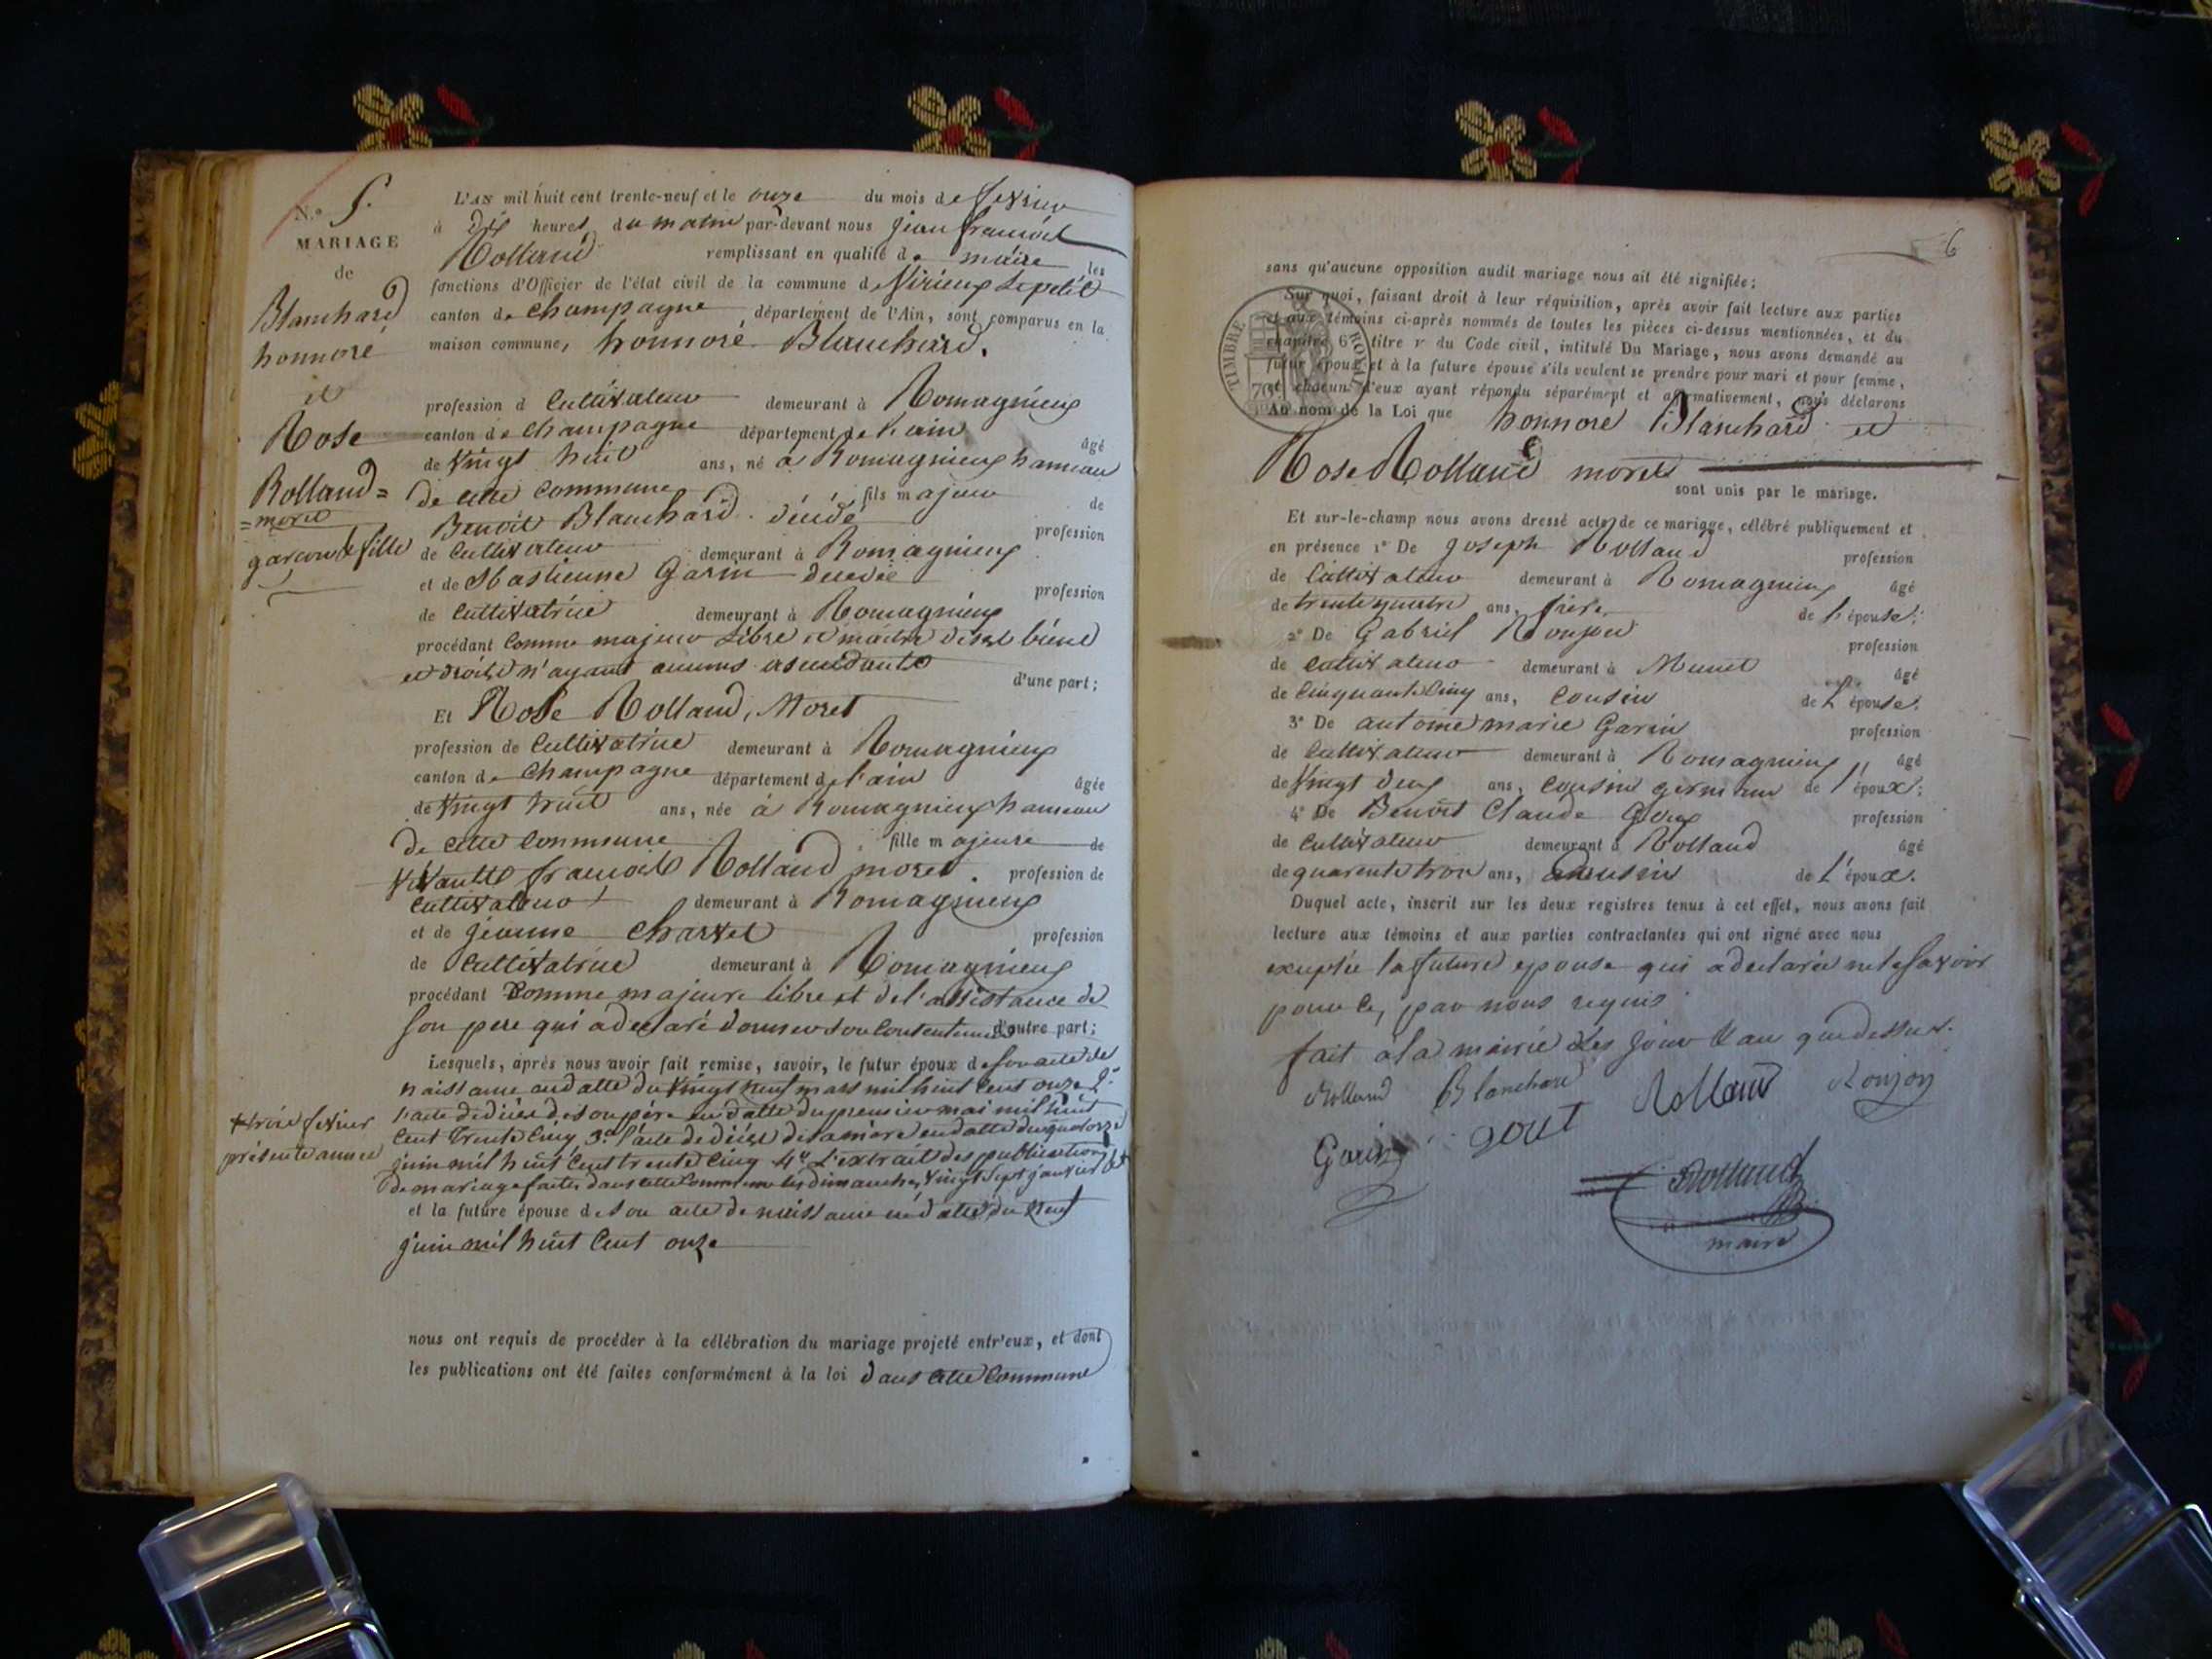 N.° 5.
MARIAGE
de
Blanchard
honnoré
et
Rose
Rolland=
=moret
garcon & fille
L'AN mil huit cent trente-neuf et le onze du mois de fevrier
à Dix heures du matin par-devant nous jean francois
Rolland remplissant en qualité de maire les
fonctions d'Officier de l'état civil de la commune de Virieux Lepetit
canton de Champagne département de l'Ain, sont comparus en la
maison commune, honnoré Blanchard.
profession d Cultivateur demeurant à Romagnieux
canton de Champagne département de l'ain âgé
de Vingt huit ans, né à Romagnieux hameau
de cette commune fils majeur de
Benoit Blanchard décédé profession
de Cultivateur demeurant à Romagnieux
et de Sbastienne Garin decedée profession
de Cultivatrice demeurant à Romagnieux
procédant Comme majeur Libre et maitre deses biens
et droits n'ayant aucuns asendants d'une part;
Et Rose Rolland, Moret
profession de Cultivatrice demeurant à Romagnieux
canton de Champagne département de l'ain âgée
de Vingt huit ans, née à Romagnieux hameau
de cette Commune fille majeure de
Vivants francois Rolland moret. profession de
Cultivateur demeurant à Romagnieux
et de jeanne Charvet profession
de Cultivatrice demeurant à Romagnieux
procédant Comme majeure libre et de l'assistance de
son pere qui adeclaré donner son Consentement d'autre part;
Lesquels, après nous avoir fait remise, savoir, le futur époux de son acte de
naissance en datte du Vingt neuf mars mil huit Cent onze 2°
l'acte dédécès deson père en datte du premier mai mil huit
Cent trente Cinq 3° l'acte dedécès desa mère en datte du quatorze
juin mil huit Cent trente Cinq 4° L'extrait des publications
de mariage faites dans cette Commune les dimanches Vingt Sept janvier &
trois fevrier
présente année
et la future épouse de son acte de naissance en datte du neuf
juin mil huit Cent onze
nous ont requis de procéder à la célébration du mariage projeté entr'eux, et dont
les publications ont été faites conformément à la loi dans cette Commune
6
sans qu'aucune opposition audit mariage nous ait été signifiée;
Sur quoi, faisant droit à leur réquisition, après avoir fait lecture aux parties
et aux témoins ci-après nommés de toutes les pièces ci-dessus mentionnées, et du
chapitre 6 titre v du Code civil, intitulé Du Mariage, nous avons demandé au
futur époux et à la future épouse s'ils veulent se prendre pour mari et pour femme,
et chacun d'eux ayant répondu séparément et affirmativement, nous déclarons
Au nom de la Loi que honnoré Blanchard et
TIMBRE ROYAL
70
Rose Rolland moret
sont unis par le mariage.
Et sur-le-champ nous avons dressé acte de ce mariage, célébré publiquement et
en présence 1° De joseph Rolland profession
de Cultivateur demeurant à Romagnieux âgé
de trente quatre ans, frère de l'épouse;
2° De Gabriel Roujon profession
de Cultivateur demeurant à Munet âgé
de Cinquante Cinq ans, Cousin de L'épouse.
3° De antoine marie Garin profession
de Cultivateur demeurant à Romagnieux âgé
de Vingt deux ans, Cousin germain de l'époux;
4° De Benoit Claude Goux profession
de Cultivateur demeurant à Rolland âgé
de quarente trois ans, cousin de L'époux.
Duquel acte, inscrit sur les deux registres tenus à cet effet, nous avons fait
lecture aux témoins et aux parties contractantes qui ont signé avec nous
exceptée la future epouse qui a declaré ne le savoir
pour ce, par nous requis
fait à la mairie Les jour & an que dessus.
Rolland Blanchard Rolland Roujon
Garin gout
Rolland
maire